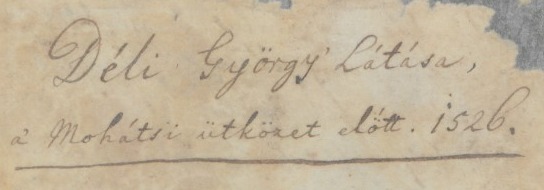 Déli György Látása,
a' Mohátsi ütközet előtt. 1526.